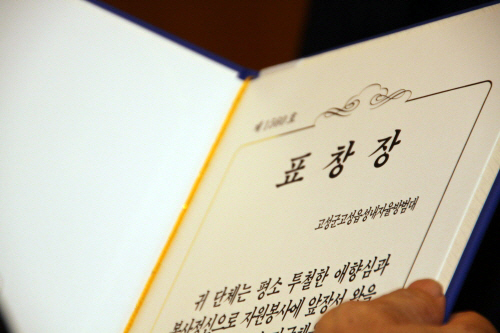 제 1560 호
표 창 장
고성군고성읍성내자율방범대
귀 단체는 평소 투철한 애향심과
봉사정신으로 자원봉사에 앞장서 왔을